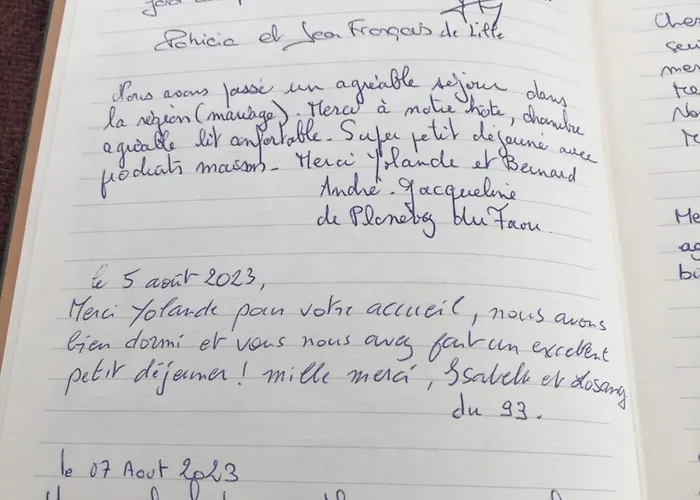 Patricia et Jean François de Lille
Nous avons passé un agréable séjour dans
la région (mariage). Merci à notre hôte, chambre
agréable lit confortable. Super petit déjeuné avec
produits maison. Merci Yolande et Bernard
André. Jacqueline
de du Faou.
le 5 août 2023,
Merci Yolande pour votre accueil, nous avons
bien dormi et vous nous avez fait un excellent
petit déjeuner! mille merci, Isabelle et
du 93.
le 07 Aout 2023
Me